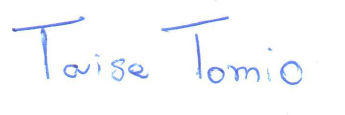 Taise Tomio